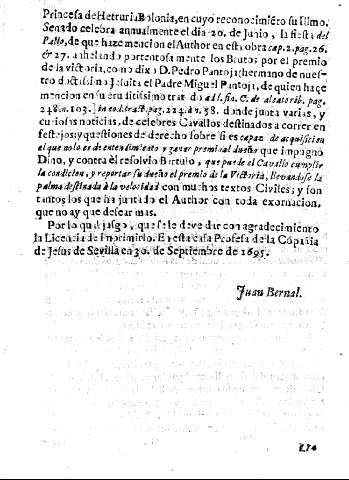 Princesa de Hetruria Bolonia, en cuyo reconocimiēto su Ilmo.
Senado celebra annualmente el dia 20. de Junio, la fiesta del
Palio, de que haze mencion el Author en esta obra cap. 2. pag. 26.
& 27. anhelando portentosamente los Brutos por el premio
de la victoria, como dixo D. Pedro Pantoja (hermano de nues-
tro doctissimo Jesuita el Padre Miguel Pantoja, de quien haze
mencion en su eruditissimo tratado ad l. fin. C. de aleatorib. pag.
248. n. 103.) in eod. tract. pag. 224. à n. 58. donde junta varias, y
curiosas noticias, de celebres Cavallos destinados a correr en
festejos; y questiones de derecho sobre si es capaz de acquisicion
el que no lo es de entendimiento y ganar premio al dueño que impugnò
Dino, y contra èl resolviò Bartulo, que puede el Cavallo cumplir
la condicion, y reportar su dueño el premio de la Victoria, llevandose la
palma destinada à la velocidad con muchos textos Civiles; y son
tantos los que ha juntado el Author con toda exornacion,
que no ay que desear mas.
Por lo qual juzgo, que se le deve dar con agradecimiento
la Licencia de imprimirlo. En esta casa Profesa de la Cōpañia
de Jesus de Sevilla en 30. de Septiembre de 1695.
Juan Bernal.